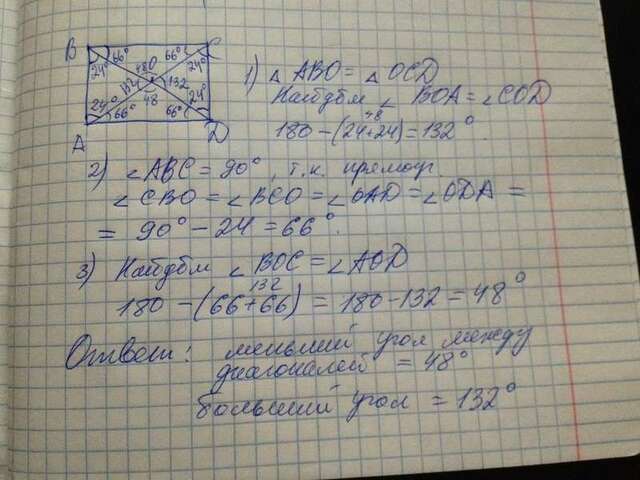 B 66° 66° C
24° 480 24°
132 132
24° 48 24°
66° 66°
A D
1) △ ABO = △ OCD
Найдём ∠ BOA = ∠COD
48
180 - (24+24) = 132°.
2) ∠ABC = 90°, т.к. прямоуг.
∠CBO = ∠BCO = ∠OAD = ∠ODA =
= 90° - 24 = 66°.
3) Найдём ∠ BOC = ∠AOD
132
180 - (66+66) = 180 - 132 = 48°
Ответ: меньший угол между
диагоналей = 48°
больший угол = 132°